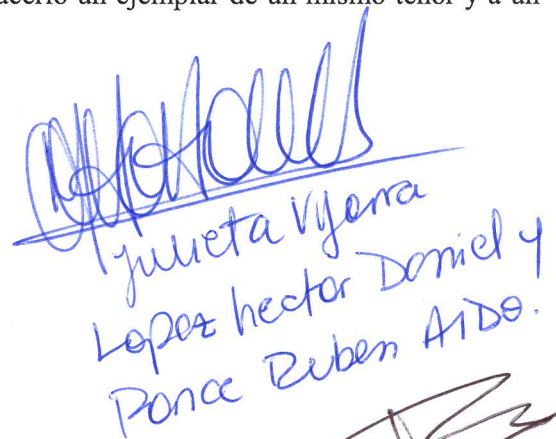 un ejemplar de un mismo tenor y a un
Julieta
Lopez hector Daniel y
Ponce Ruben AIDO.